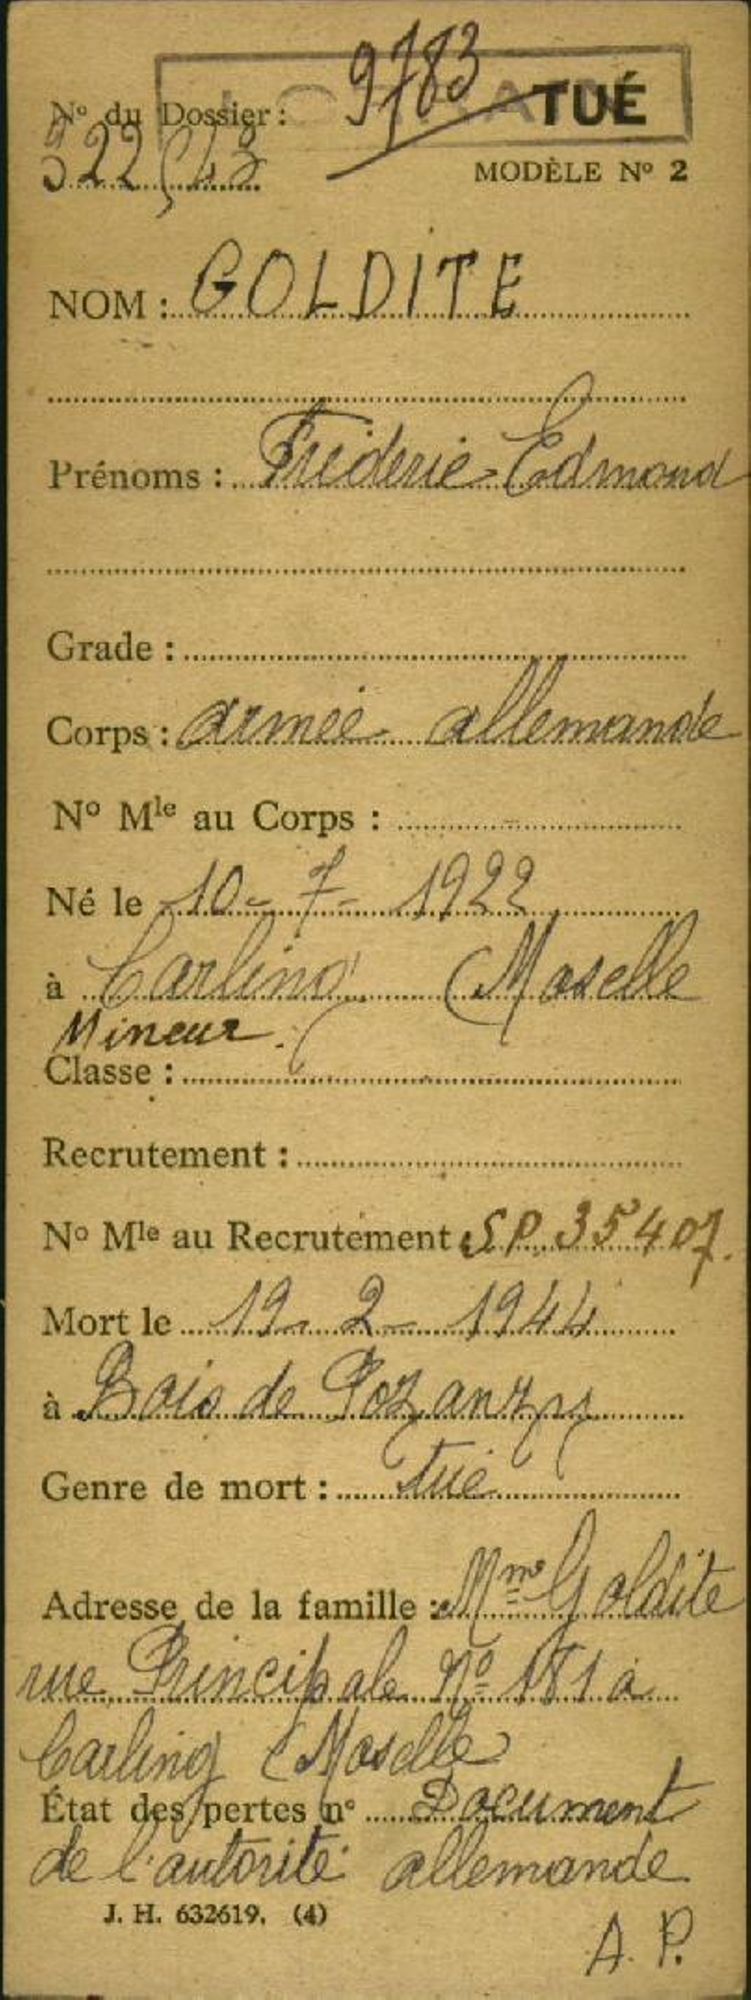 9783
N° du Dossier : TUÉ
MODÈLE N° 2
NOM : GOLDITE
Prénoms : Fréderic Edmond
Grade :
Corps : armée allemande
N° Mle au Corps :
Né le 10 - 7 - 1922
à Carling (Moselle
Mineur.
Classe :
Recrutement :
N° Mle au Recrutement SP. 35407.
Mort le 19 - 2 - 1944
à Bois de
Genre de mort : tué
Adresse de la famille : Mme Goldite
rue Principale N° 181 à
Carling (Moselle)
État des pertes n° Document
de l'autorité allemande
J. H. 632619. (4)
A. P.